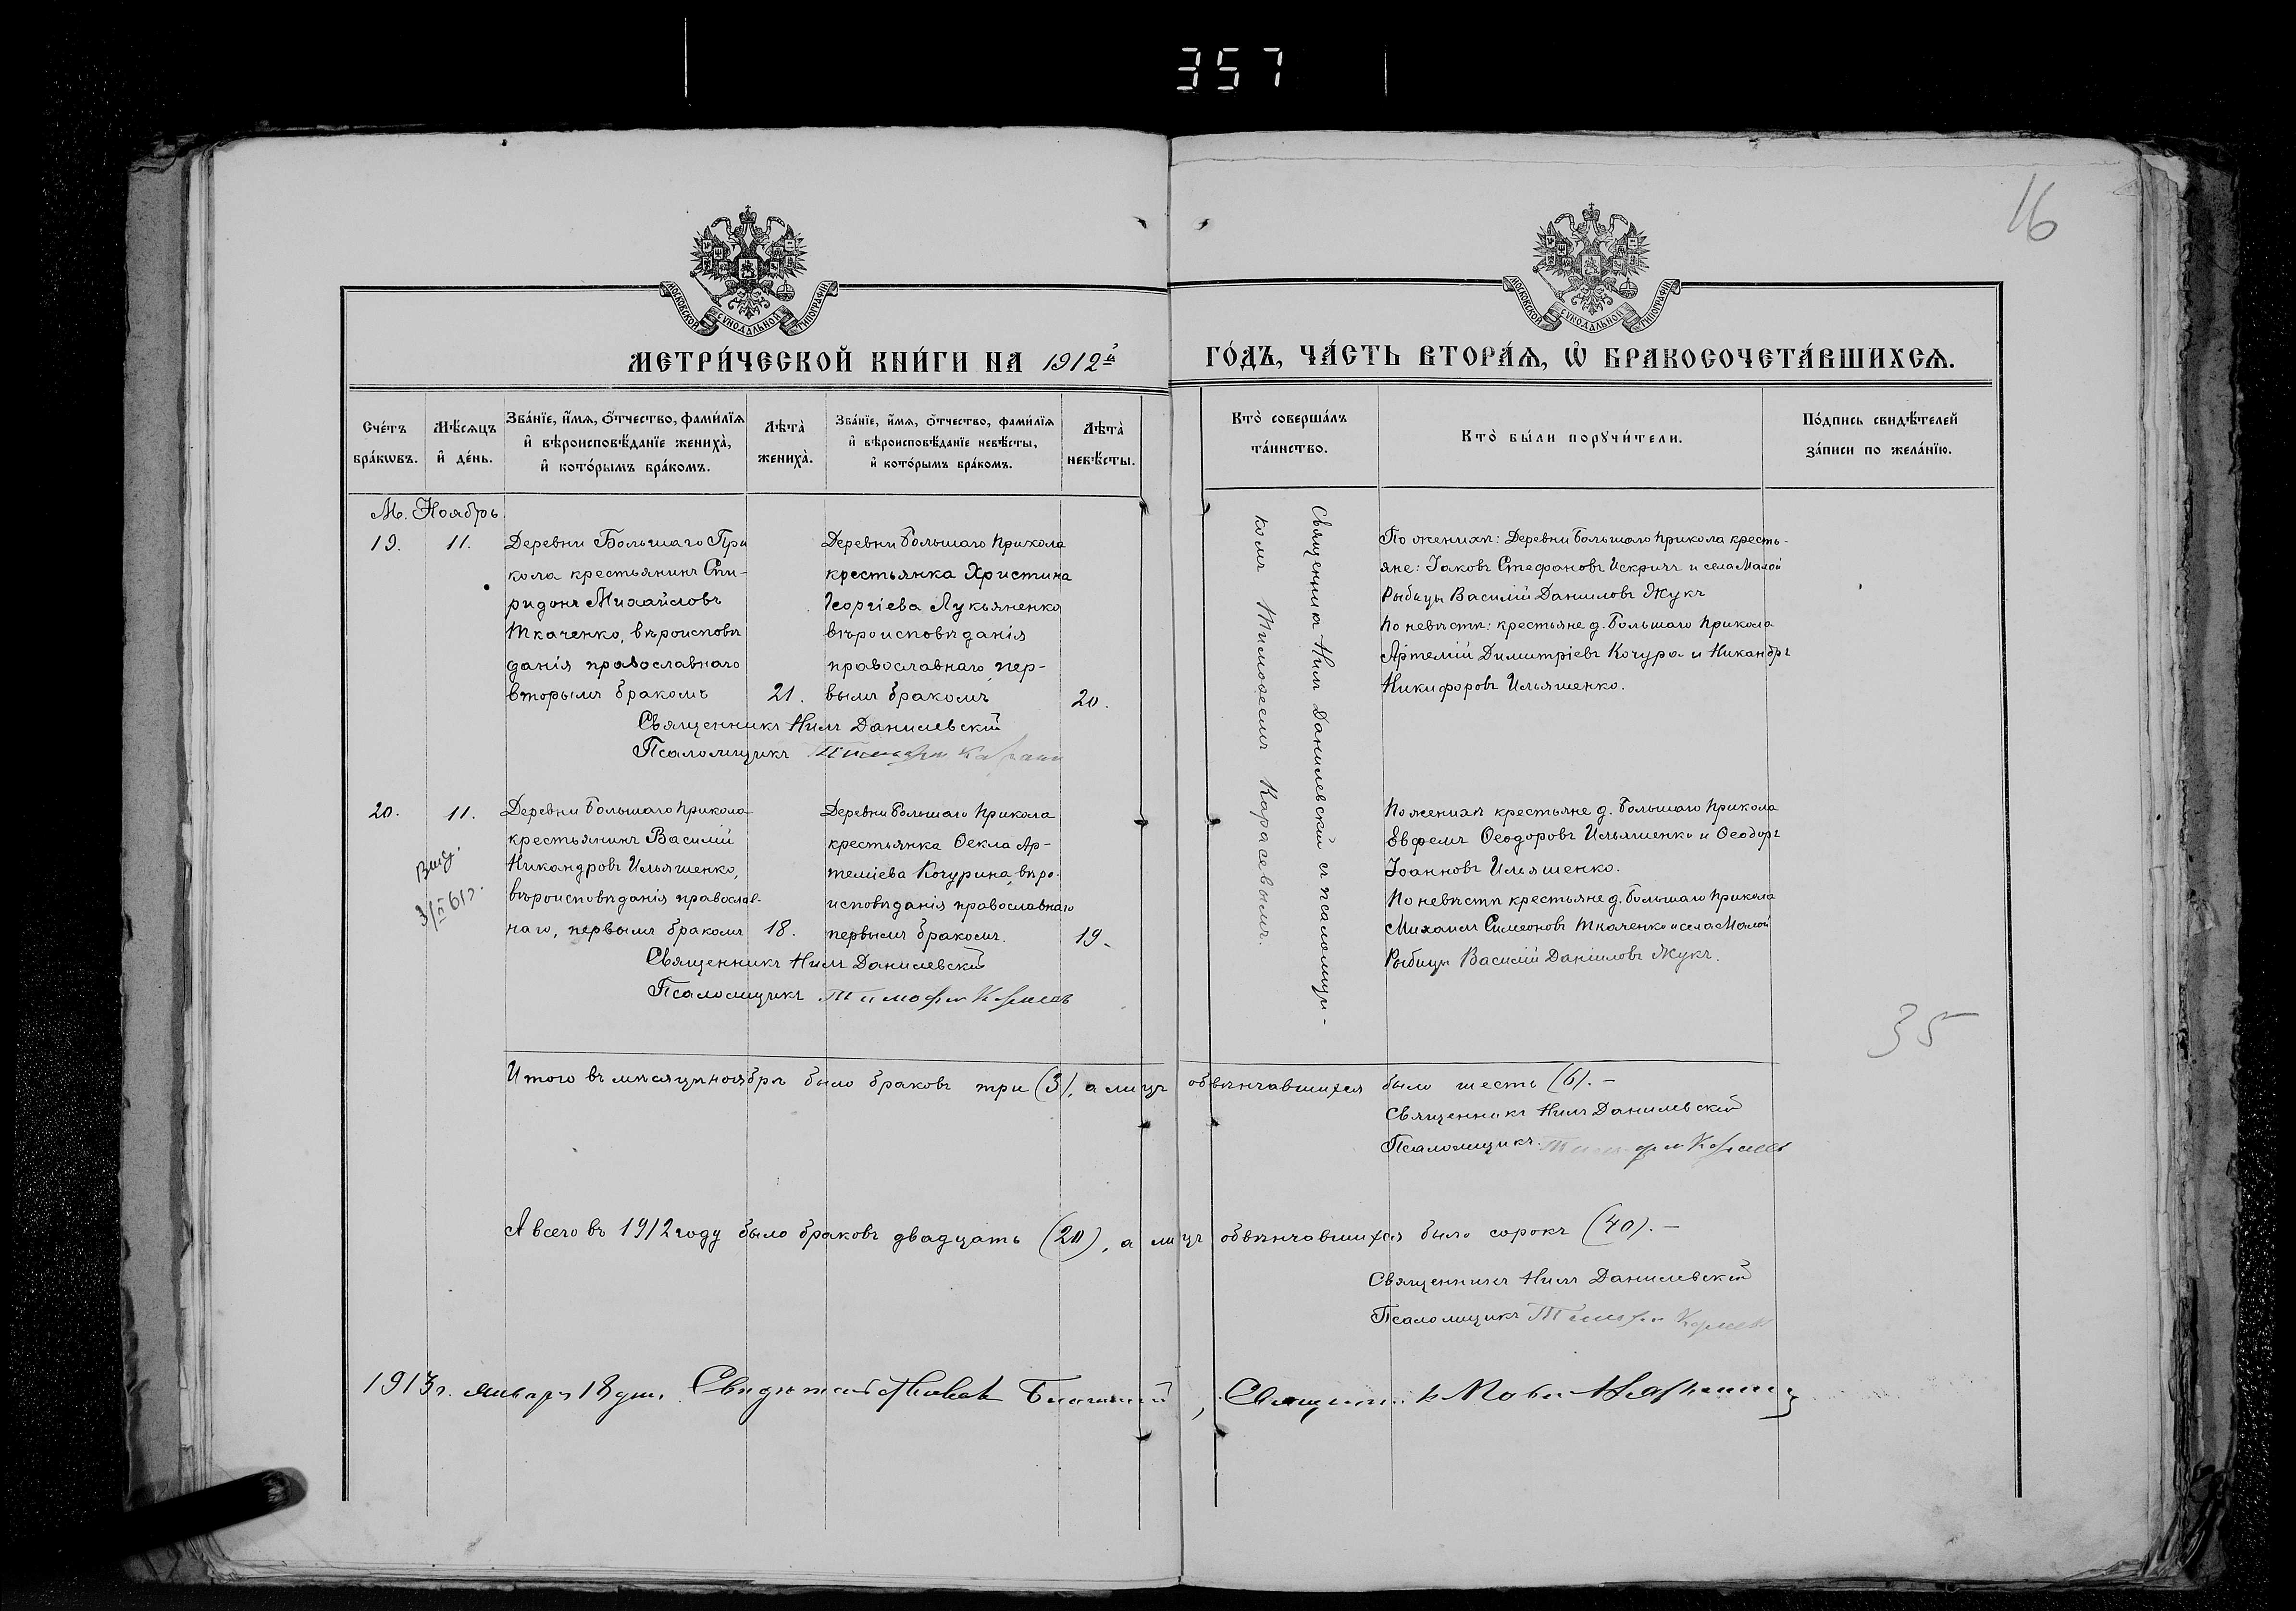 357
16
МОСКОВСКОЙ СѴНОДАЛЬНОЙ ТИПОГРАФІИ
МОСКОВСКОЙ СѴНОДАЛЬНОЙ ТИПОГРАФІИ
МЕТРИ́ЧЕСКОЙ КНИ́ГИ НА 1912й ГО́ДЪ, ЧА́СТЬ ВТОРА́Ѧ, Ѽ БРАКОСОЧЕТА́ВШИХСѦ.
Сче́тъ бра́кѡвъ.
Мѣ́сѧцъ и҆ де́нь.
Зва́нїе, и҆́мѧ, ѻ҆́тчество, фами́лїѧ и҆ вѣроисповѣ́данїе жениха̀, и҆ кото́рымъ бра́комъ.
Лѣта̀ жениха̀.
Зва́нїе, и҆́мѧ, ѻ҆́тчество, фами́лїѧ и҆ вѣроисповѣ́данїе невѣ́сты, и҆ кото́рымъ бра́комъ.
Лѣта̀ невѣ́сты.
Кто̀ соверша́лъ та́инство.
Кто̀ бы́ли порꙋчи́тели.
По́дпись свидѣ́телей за́писи по жела́нїю.
М. Ноябрь
19.
11.
Деревни Большаго При
кола крестьянинъ Спи-
ридонъ Михайловъ
Ткаченко, вѣроисповѣ
данія православнаго
вторымъ бракомъ
21.
Деревни Большаго Прикола
крестьянка Христина
Георгіева Лукьяненко
вѣроисповѣданія
православнаго, пер-
вымъ бракомъ
20.
Священникъ Нилъ Данилевскій
Псаломщикъ Тимофей Карасевъ
Священникъ Нилъ Данилевскій съ псаломщи-
комъ Тимоѳеемъ Карасевымъ.
По женихѣ: Деревни Большаго Прикола кресть-
яне: Іаковъ Стефановъ Искричъ и села Малой
Рыбицы Василій Даниловъ Жукъ
По невѣстѣ: крестьяне д. Большаго Прикола
Артемій Димитріевъ Кочура и Никандръ
Никифоровъ Ильяшенко.
20.
11.
Выд.
3/II 61г.
Деревни Большаго Прикола
крестьянинъ Василій
Никандровъ Ильяшенко,
вѣроисповѣданія православ-
наго, первымъ бракомъ
18.
Деревни Большаго Прикола
крестьянка Ѳекла Ар-
теміева Кочурина, вѣро-
исповѣданія православнаго
первымъ бракомъ.
19.
Священникъ Нилъ Данилевскій
Псаломщикъ Тимофей Карасевъ
По женихѣ крестьяне д. Большаго Прикола
Евфемъ Ѳеодоровъ Ильяшенко и Ѳеодоръ
Іоанновъ Ильяшенко.
По невѣстѣ крестьяне д. Большаго Прикола
Михаилъ Симеоновъ Ткаченко и села Малой
Рыбицы Василій Даніиловъ Жукъ.
35
Итого въ мѣсяцѣ ноябрѣ было браковъ три (3), а лицъ обвѣнчавшихся было шесть (6). –
Священникъ Нилъ Данилевскій
Псаломщикъ Тимофей Карасевъ
А всего въ 1912 году было браковъ двадцать (20), а лицъ обвѣнчавшихся было сорокъ (40). –
Священникъ Нилъ Данилевскій
Псаломщикъ Тимофей Карасевъ
1913г. января 18 дня.